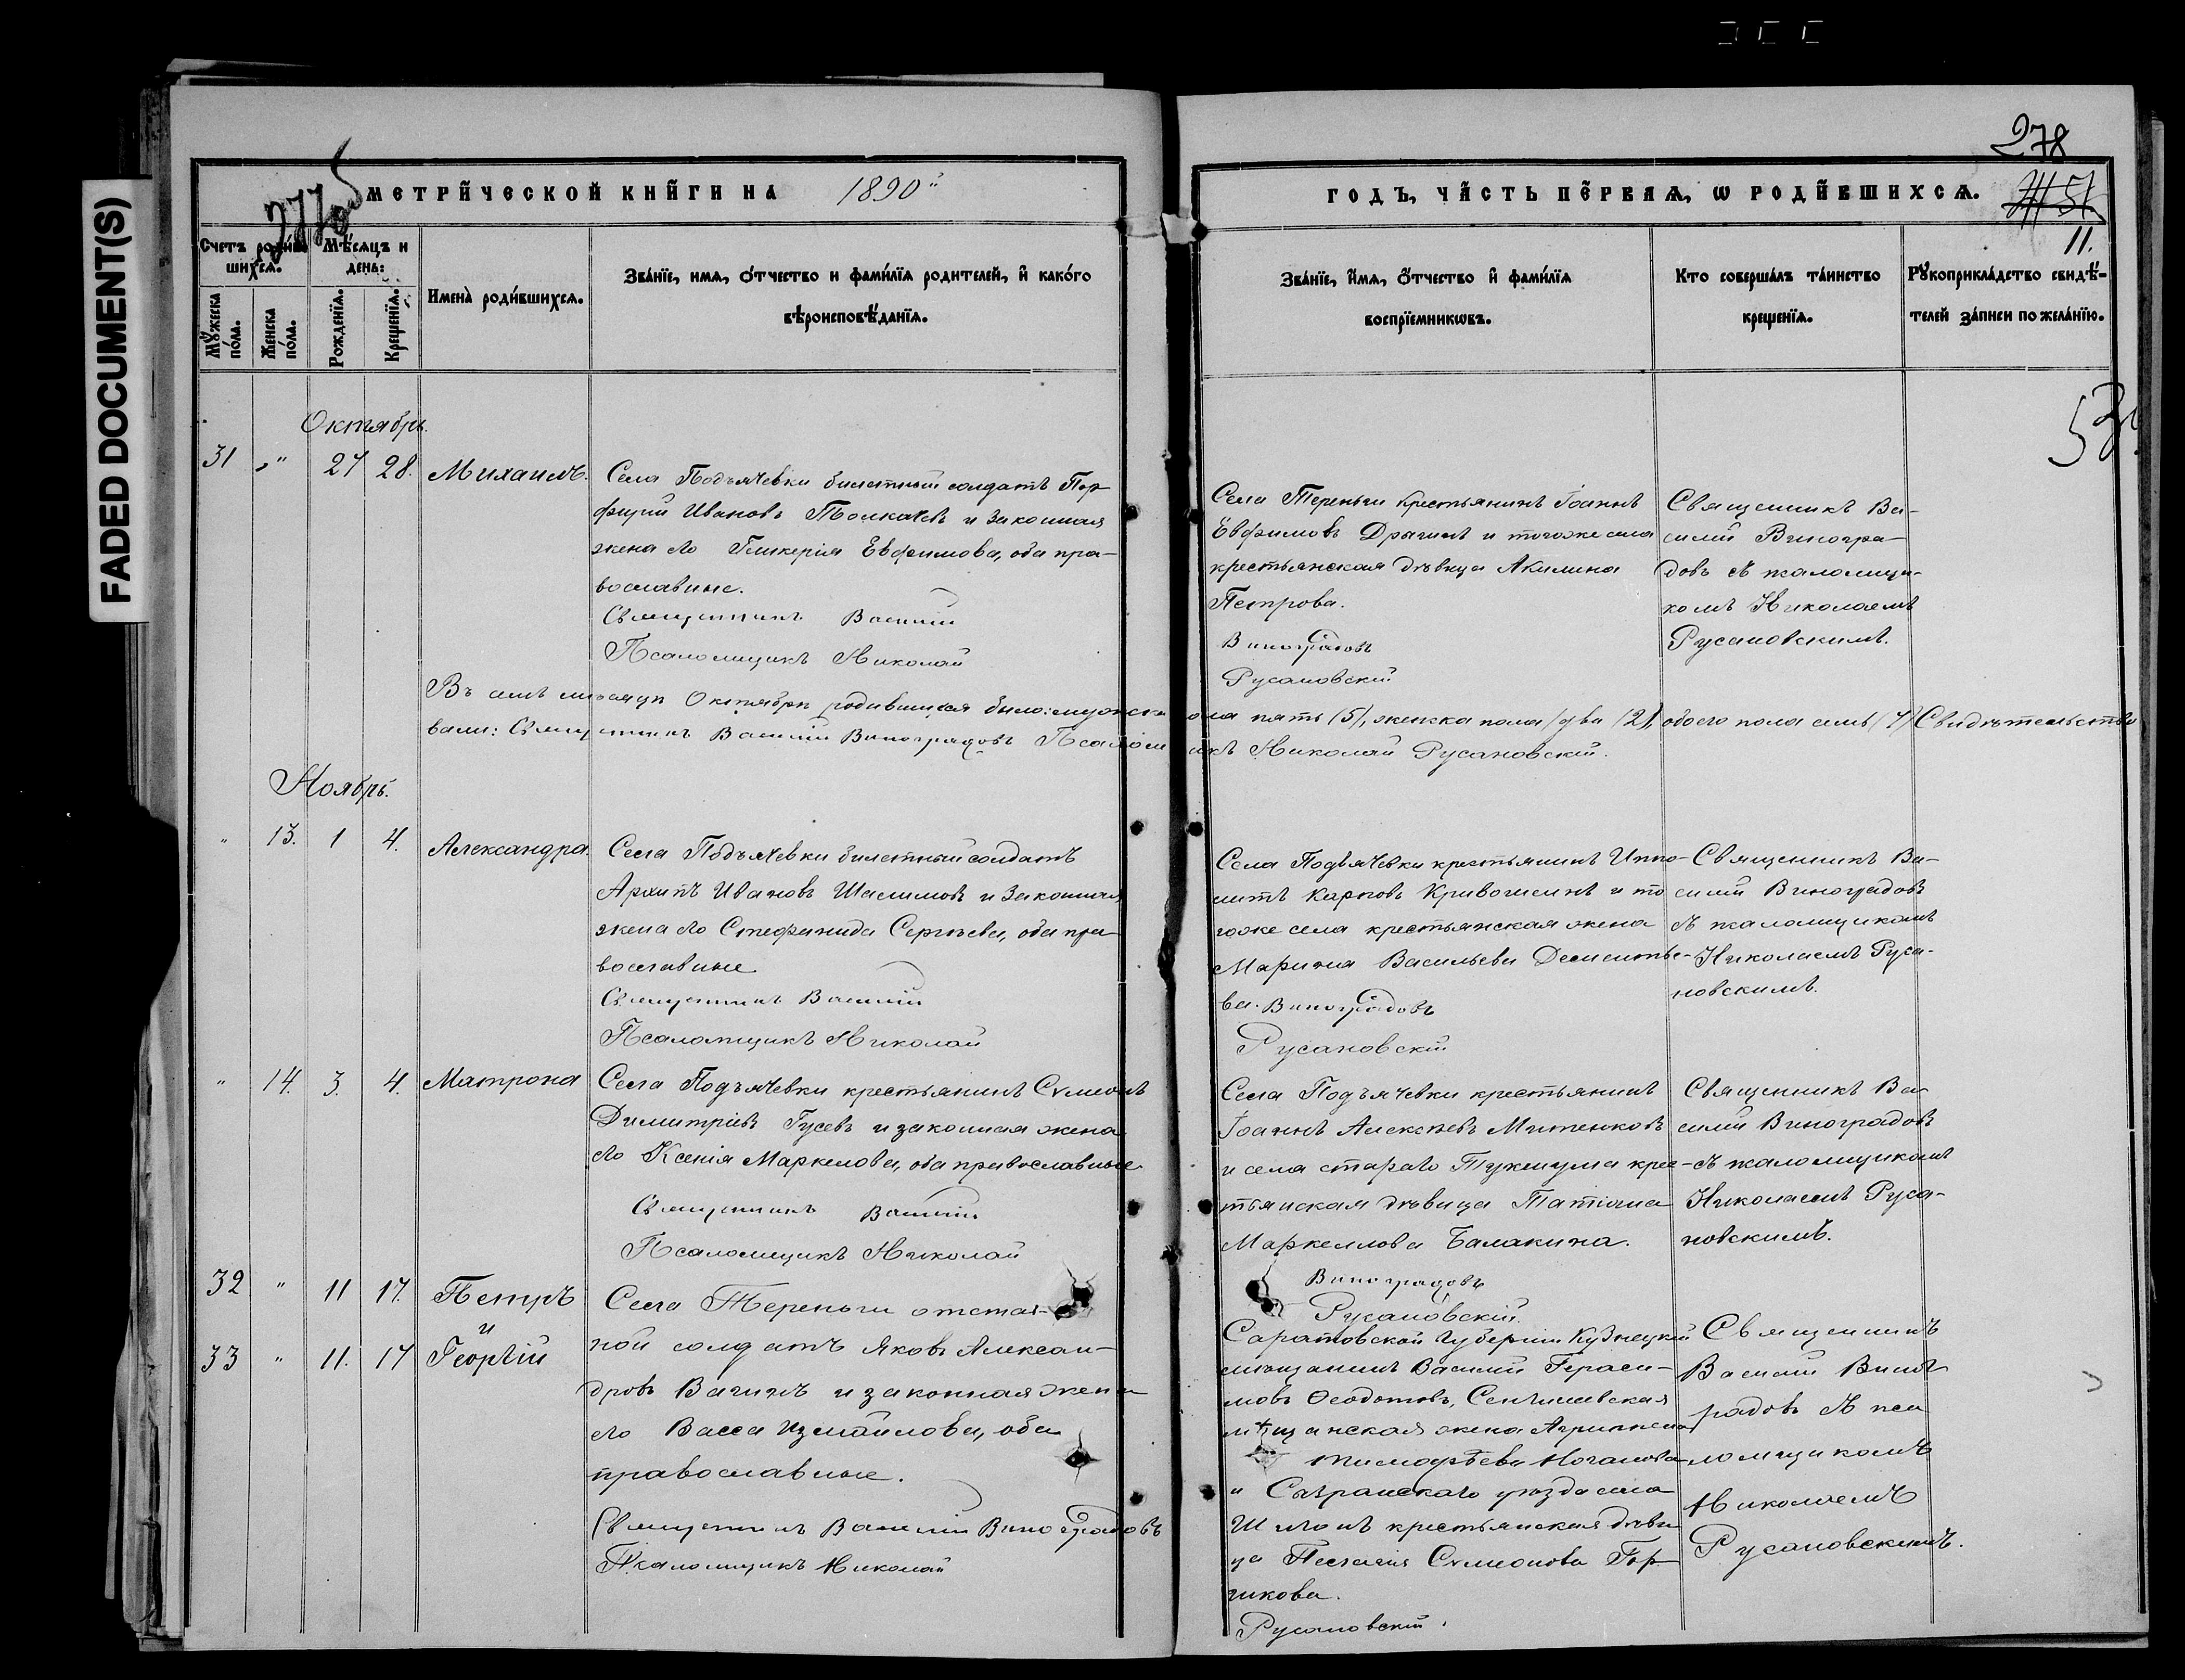 FADED DOCUMENT(S)
278
МЕТРИЧЕСКОЙ КНИГИ НА 1890й
ГОДЪ, ЧАСТЬ ПЕРВАЯ, Ѡ РОДИВШИХСЯ.
11.
Счетъ родив-
шихся.
Мѣсяцъ и
день:
Мꙋжеска
пола.
Женска
пола.
Рожденїя.
Крещенїя.
Имена родившихся.
Званїе, имя, отчество и фамилїя родителей, и какого
вѣроисповѣданїя.
Званїе, имя, отчество и фамилїя
воспрїемникѡвъ.
Кто совершалъ таинство
крещенїя.
Рꙋкоприкладство свидѣ-
телей записи по желанїю.
53.
Октябрь.
31 " 27 28. Михаилъ.
Села Подъячевки билетный солдатъ Пор-
фирий Ивановъ Толкачевъ и законная
жена его Гликерія Евфимова, оба пра-
вославные.
Священникъ Василий
Псаломщикъ Николай
Села Тереньги крестьянинъ Іоаннъ
Евфимовъ Драгинъ и тогоже села
крестьянская дѣвица Акилина
Петрова.
Виноградовъ
Русановскій
Священникъ Ва-
силий Виногра-
довъ съ псаломщи-
комъ Николаемъ
Русановскимъ.
Въ семъ мѣсяцѣ Октябрѣ родившихся было: мужска пола пять (5), женска пола (два (2), обоего пола семь (7) Свидѣтельство
вали: Священникъ Василій Виноградовъ Псаломщикъ Николай Русановскій.
Ноябрь.
" 13. 1 4. Александра.
Села Подъячевки билетный солдатъ
Архипъ Ивановъ Шалимовъ и законная
жена его Стефанида Сергѣева, оба пра-
вославные
Священникъ Василий
Псаломщикъ Николай
Села Подъячевки крестьянинъ Иппо-
литъ Карповъ Кривошеинъ и то
гоже села крестьянская жена
Марина Васильева Дементье-
ва. Виноградовъ
Русановскій
Священникъ Ва-
силий Виноградовъ
съ псаломщикомъ
Николаемъ Руса-
новскимъ.
" 14. 3. 4. Матрона
Села Подъячевки крестьянинъ Сѵмеонъ
Димитріевъ Гусевъ и законная жена
его Ксенія Маркелова, оба православные.
Священникъ Василий
Псаломщикъ Николай
Села Подъячевки крестьянинъ
Іоаннъ Алексѣевъ Митенковъ
и села стараго Тукшума крес-
тьянская дѣвица Татіана
Маркеллова Балакина.
Виноградовъ
Русановскій.
Священникъ Ва-
силий Виноградовъ
съ псаломщикомъ
Николаемъ Руса-
новскимъ.
32 " 11 17. Петръ
и
33 " 11. 17 Георгій
Села Тереньги отстав-
ной солдатъ Яковъ Алексан-
дровъ Вагинъ и законная жена
его Васса Измаилова, оба
православные.
Священникъ Василій Виноградовъ
Псаломщикъ Николай
Саратовской Губерніи Кузнецкій
мѣщанинъ Василий Гераси-
мовъ Ѳеодотовъ, Сенгилеевская
мѣщанская жена Агриппена
Тимофѣева
и Сызранскаго уѣзда села
крестьянская дѣви
ца Пелагия Сѵмеонова Гор-
шкова.
Русановскій.
Священникъ
Василий Виног-
радовъ съ пса
ломщикомъ
Николаемъ
Русановскимъ.